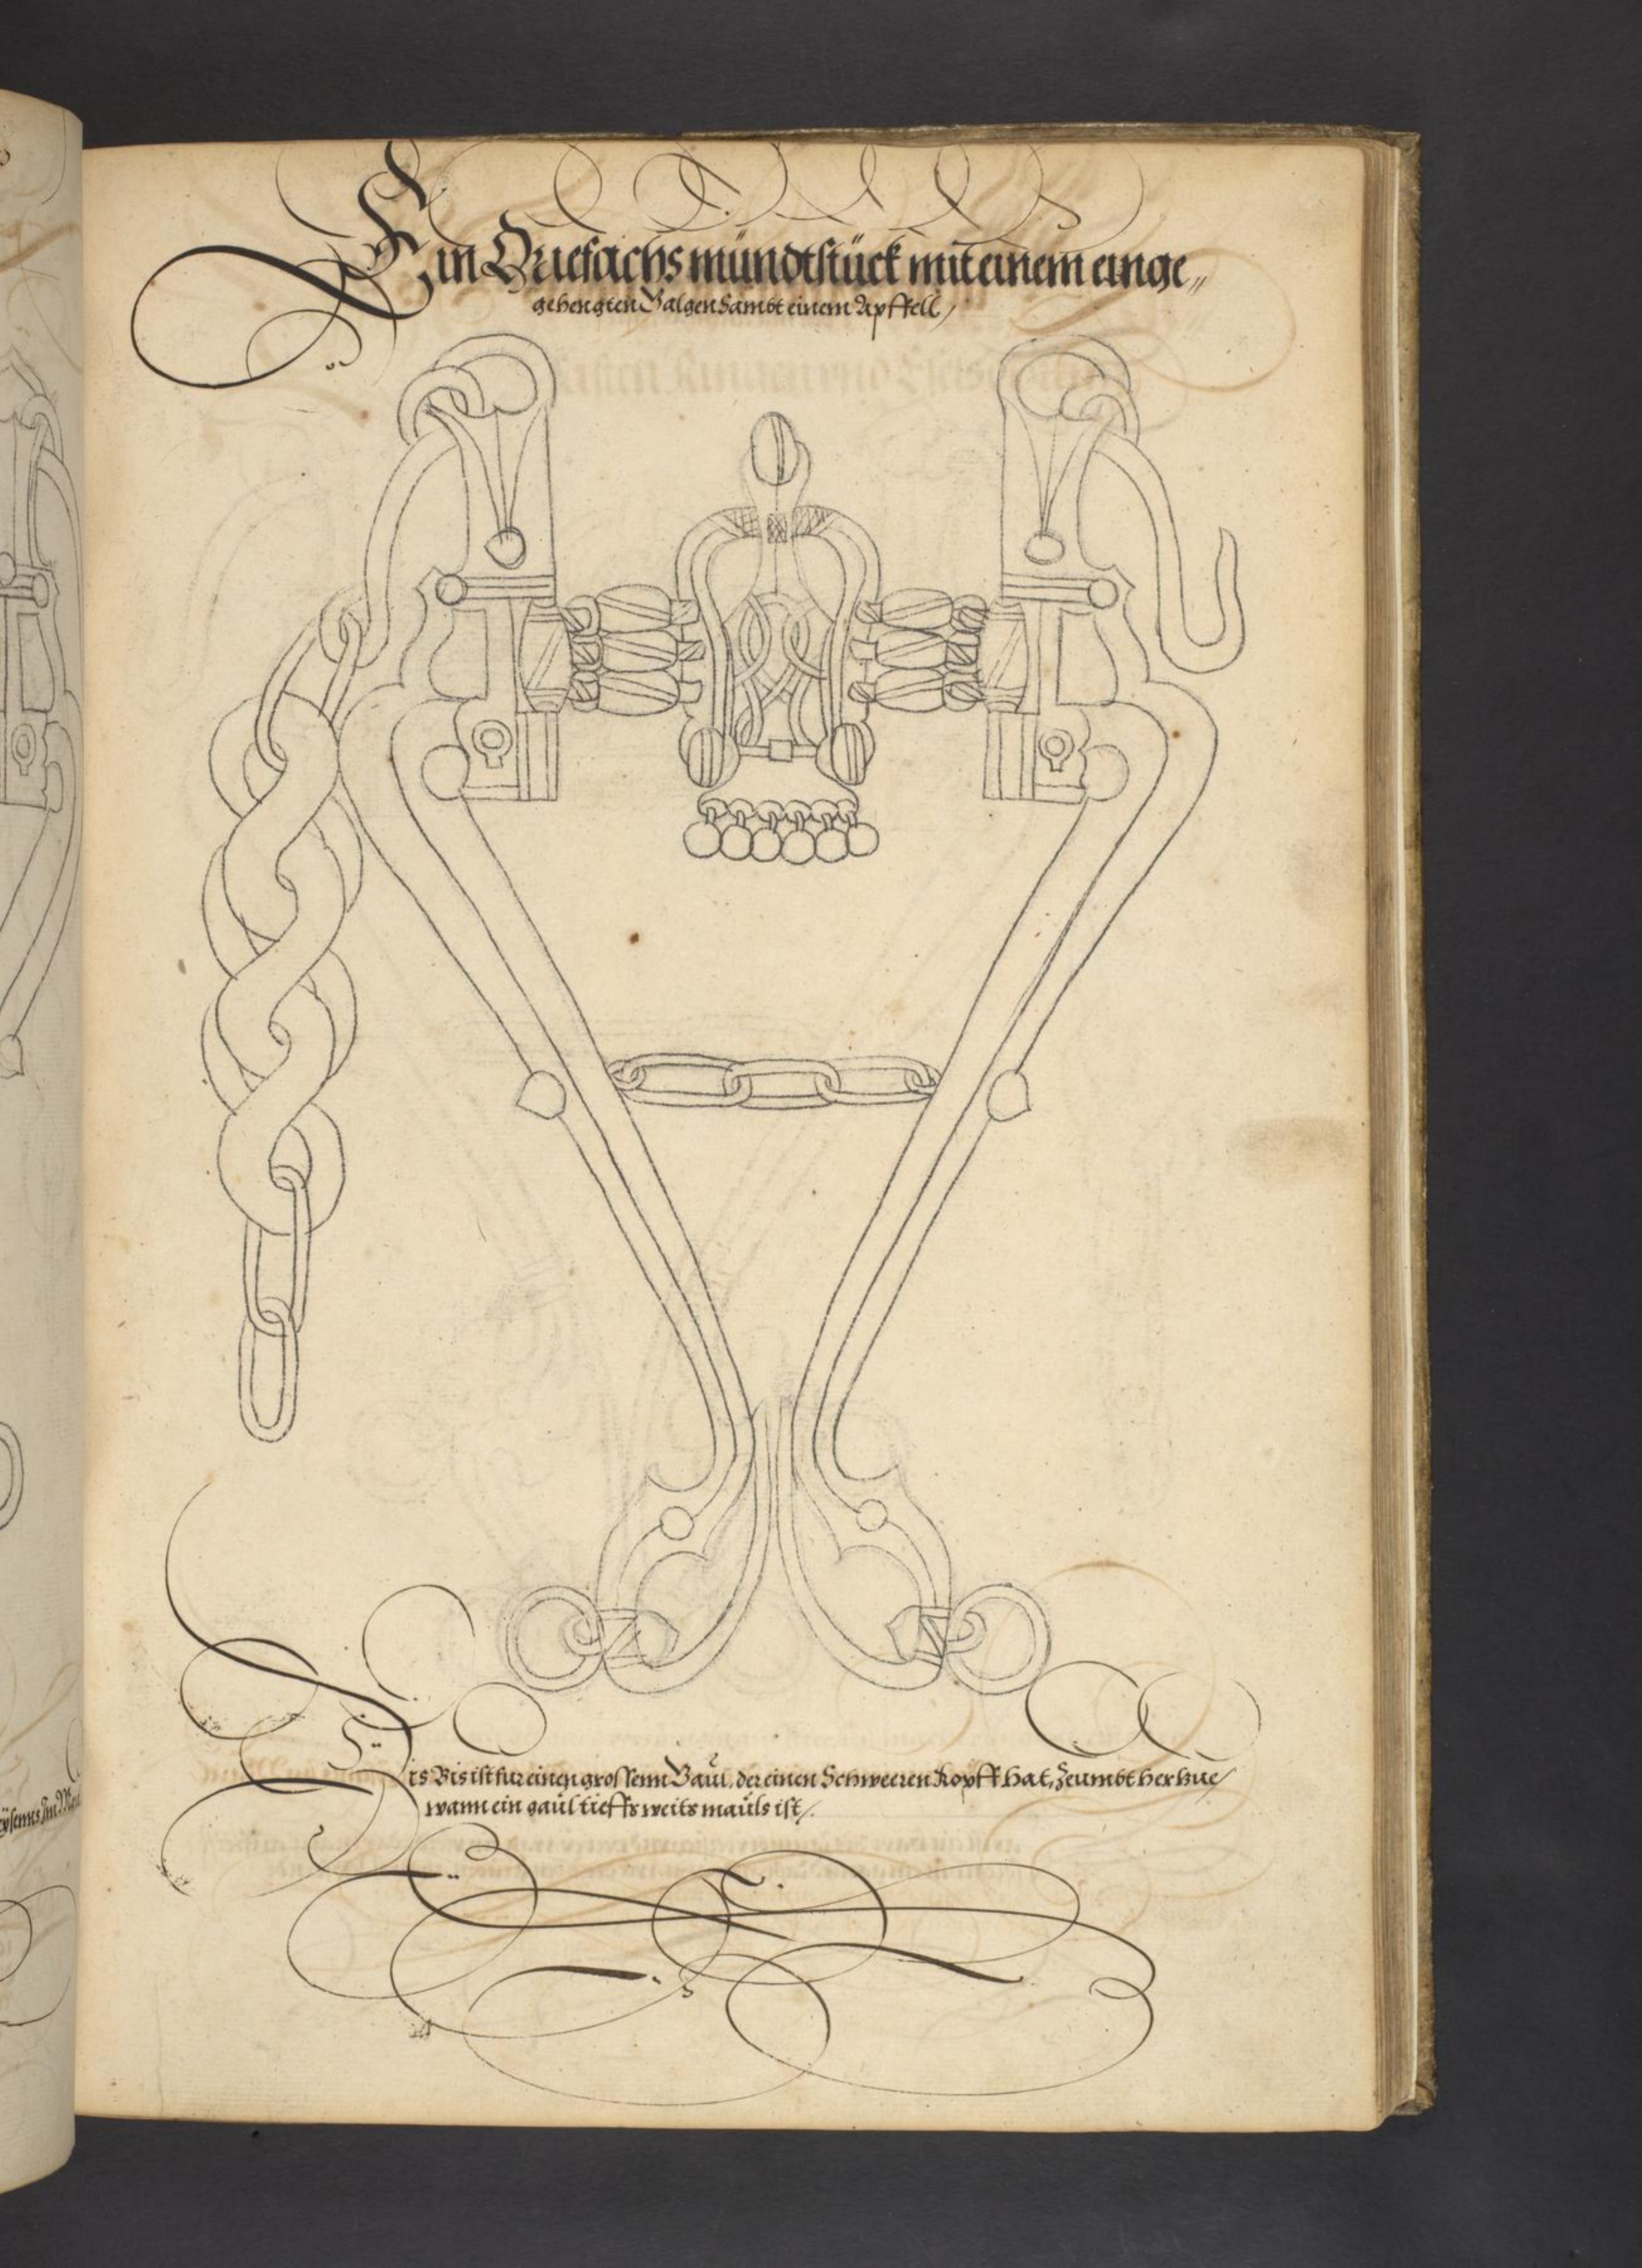 Ein Driefachs mündtstück mit einem einge„
gehengten Galgen Sambt einem Apffell /
Dis Bis ist fur einen grossenn Gaul, der einen Schweeren Kopff hat, Zeumbt her hue /
wann ein gaul tieffs weits mauls ist /.